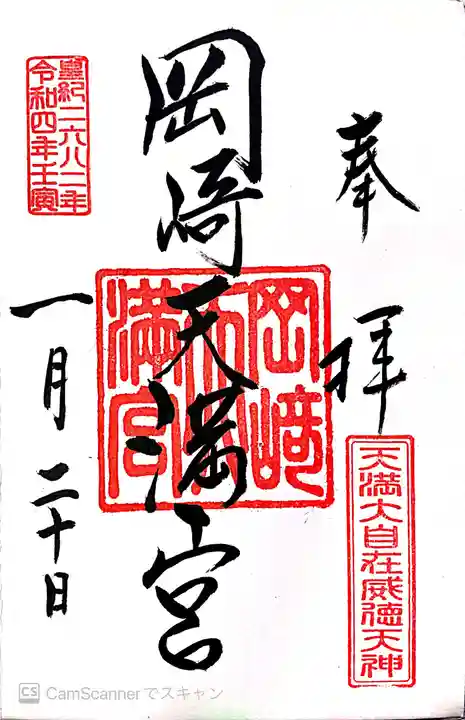 奉拝
天満大自在威徳天神
岡崎天満宮
岡﨑天満宮
皇紀二六八二年
令和四年壬寅
一月二十日
CS CamScannerでスキャン